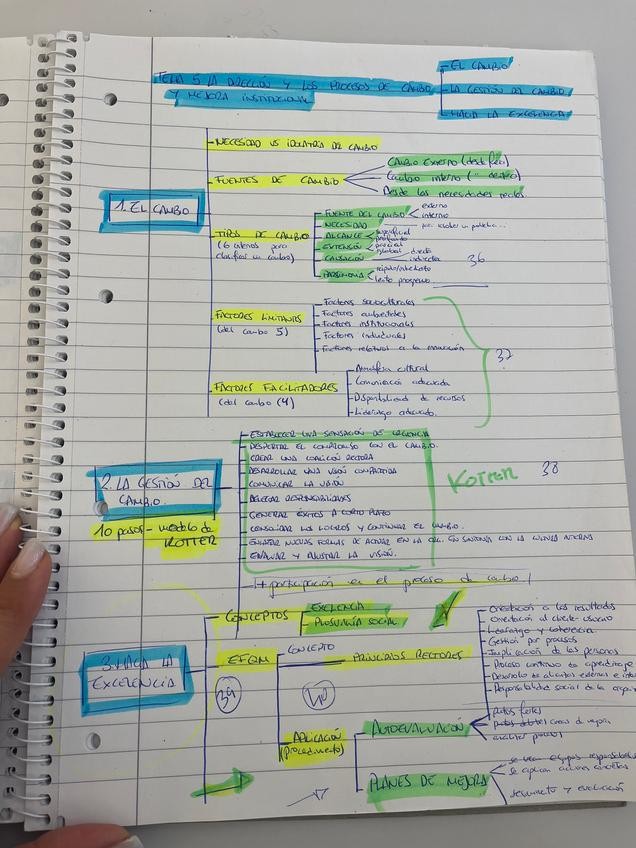 TEMA 5 LA DIRECCIÓN Y LOS PROCESOS DE CAMBIO
Y MEJORA INSTITUCIONAL
EL CAMBIO
LA GESTIÓN DEL CAMBIO
HACIA LA EXCELENCIA
1. EL CAMBIO
NECESIDAD VS IDOLATRÍA DEL CAMBIO
FUENTES DE CAMBIO
CAMBIO EXTERNO (desde fuera)
Cambio interno (" dentro)
Desde las necesidades reales
TIPOS DE CAMBIO
(6 criterios para
clasificar un cambio)
FUENTE DEL CAMBIO
externo
interno
NECESIDAD
por resolver un problema...
ALCANCE
superficial
profundo
EXTENSIÓN
parcial
global
CAUSACIÓN
directa
indirecta
36
rápido/inmediato
lento progresivo
FACTORES LIMITANTES
(del cambio 5)
Factores socioculturales
Factores ambientales
Factores institucionales
Factores individuales
Factores relativos a la innovación
37
FACTORES FACILITADORES
(del cambio (4)
Atmósfera cultural
Comunicación adecuada
Disponibilidad de recursos
Liderazgo adecuado.
2. LA GESTIÓN DEL
CAMBIO.
10 pasos - modelo de
KOTTER
ESTABLECER UNA SENSACIÓN DE URGENCIA
DESPERTAR EL COMPROMISO CON EL CAMBIO.
CREAR UNA COALICIÓN RECTORA
DESARROLLAR UNA VISIÓN COMPARTIDA
COMUNICAR LA VISIÓN
DELEGAR RESPONSABILIDADES
GENERAR ÉXITOS A CORTO PLAZO
CONSOLIDAR LOS LOGROS Y CONTINUAR EL CAMBIO.
NUEVAS FORMAS DE ACTUAR EN LA ORG. EN SINTONÍA CON LA INTERNA
EVALUAR Y AJUSTAR LA VISIÓN.
KOTTER
38
+ participación en el proceso de cambio
3. HACIA LA
EXCELENCIA
CONCEPTOS
EXCELENCIA
PLUSVALÍA SOCIAL
EFQM
39
CONCEPTO
PRINCIPIOS RECTORES
40
Orientación a los resultados
Orientación al cliente-usuario
Liderazgo y coherencia
Gestión por procesos
Implicación de las personas
Proceso continuo de aprendizaje
Desarrollo de alianzas externas e
Responsabilidad social de la
APLICACIÓN
(procedimiento)
AUTOEVALUACIÓN
puntos fuertes
puntos débiles áreas de mejora
analizar procesos
PLANES DE MEJORA
se crean equipos responsables
se aplican acciones concretas
seguimiento y evaluación